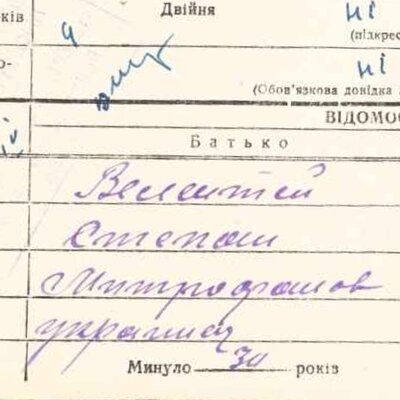 ків Двійня ні
(підкрес
о- ні
(Обов'язкова довідка
ВІДОМОС
Батько
Велентей
Степан
Митрофанов
українец
Минуло 30 років